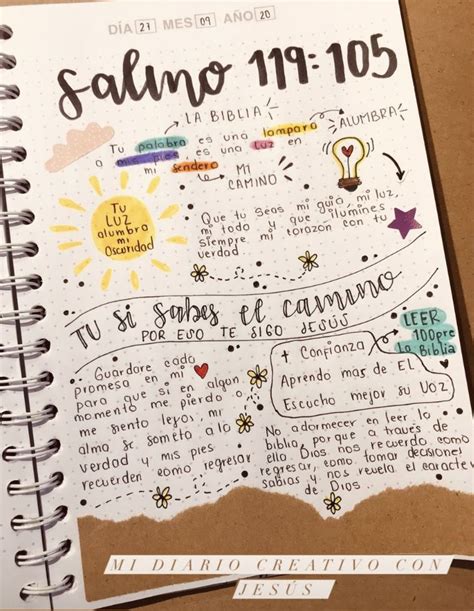 DÍA 27 MES 09 AÑO 20
Salmo 119:105
LA BIBLIA
ALUMBRA
Tu palabra es una lampara
a mis pies es una luz en
mi sendero
MI
CAMINO
Tu
LUZ
alumbra
mi
Oscuridad
Que tu seas mi guia, mi luz,
mi todo y que ilumines
siempre mi corazón con tu
verdad
TU SI SABES EL CAMINO
POR ESO TE SIGO JESÚS
LEER
100pre
La Biblia
+ Confianza
Aprendo mas de EL
Escucho mejor su Voz
Guardare cada
promesa en mi
para que si en algun
momento me pierdo o
me siento lejos, mi
alma se someta a lo
verdad y mis pies
recuerden como regresar
No adormecer en leer la
biblia, porque a través de
ello Dios nos recuerdo como
regresar, como tomar decisiones
sabias y nos revela el caracter
de Dios
MI DIARIO CREATIVO CON
JESÚS